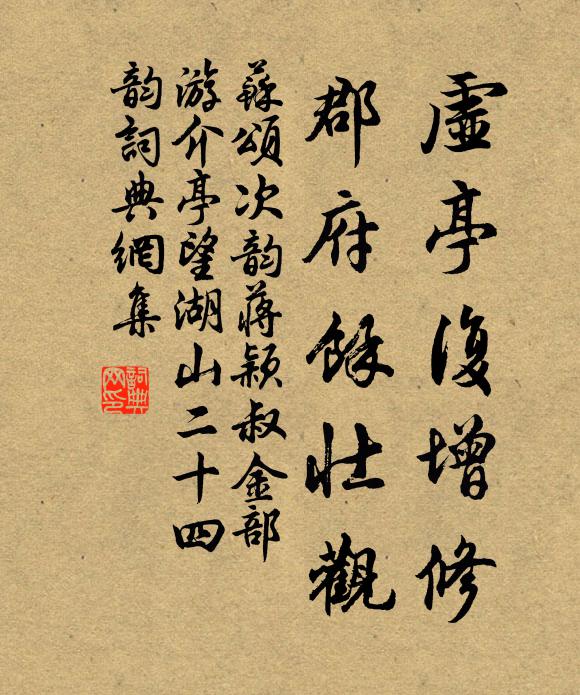 虛亭復增修
郡府餘壯觀
蘇頌次韵蔣穎叔金部
游介亭望湖山二十四
韵詞典網集
詞典
网印